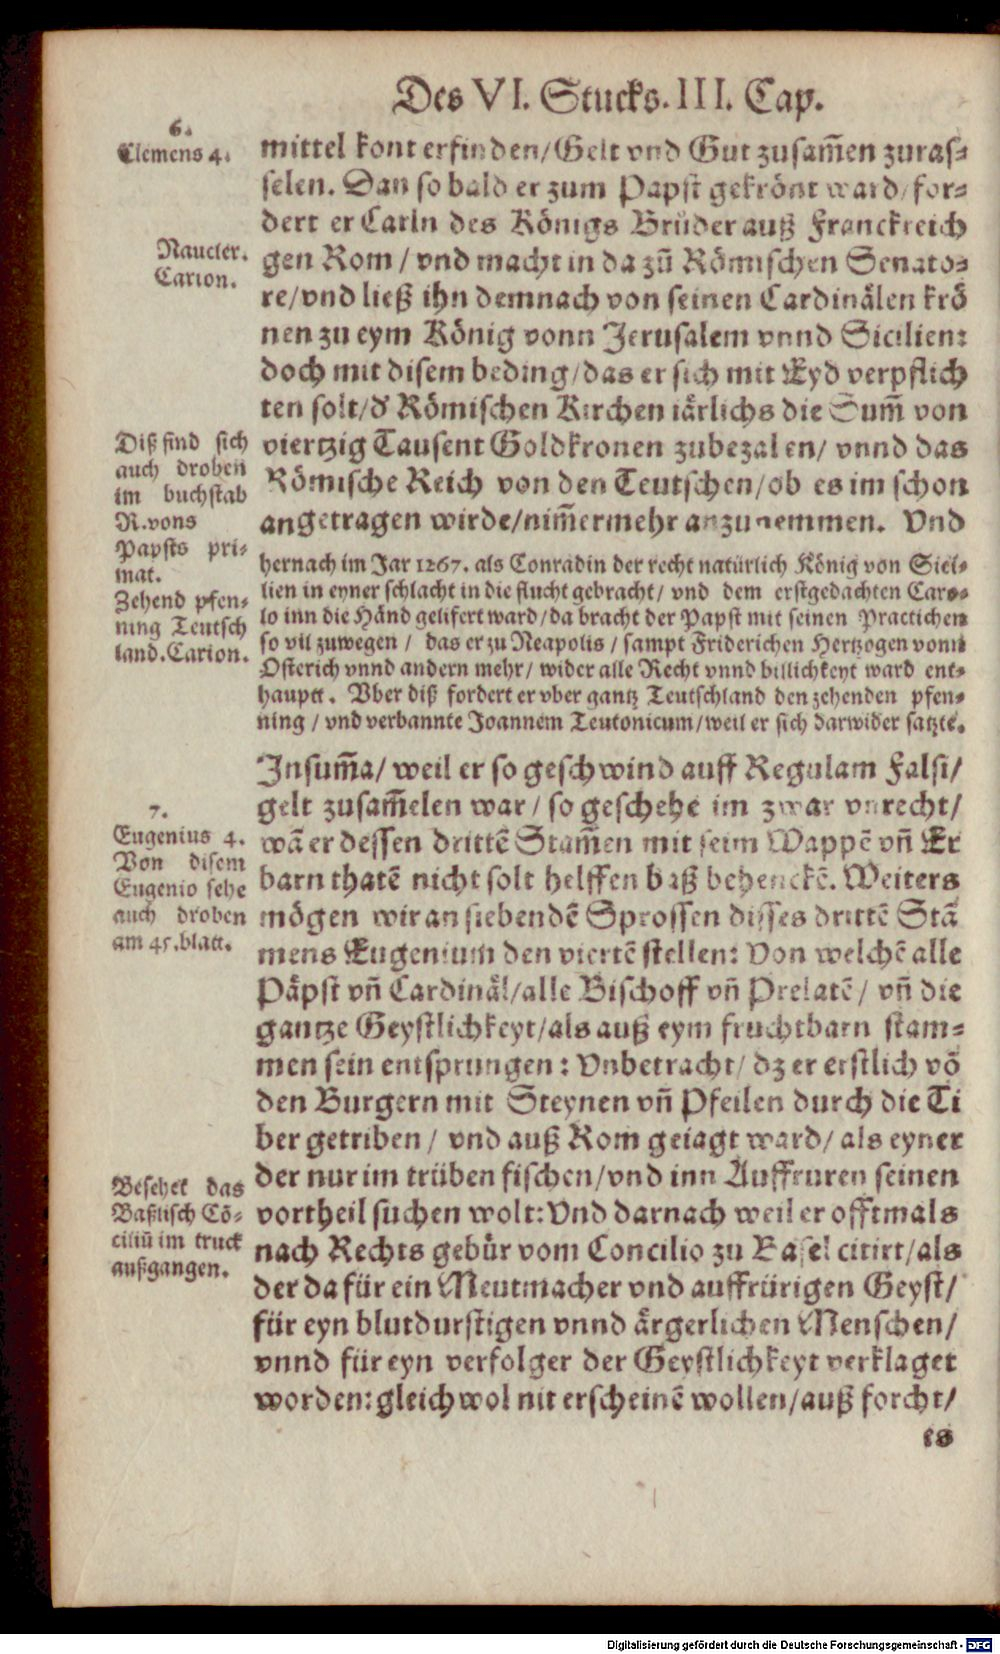 Des VI. Stucks. III. Cap.
6.
Clemens 4.
mittel kont erfinden/Gelt vnd Gut zusam̃en zuras-
selen. Dan so bald er zum Papst gekrönt ward/for-
dert er Carln des Königs Brůder auß Franckreich
Naucler.
Carion.
gen Rom/vnd macht in da zů Römischen Senato-
re/vnd ließ ihn demnach von seinen Cardinälen krö
nen zu eym König vonn Jerusalem vnnd Sicilien:
doch mit disem beding/das er sich mit Eyd verpflich
ten solt/d' Römischen Kirchen iärlichs die Sum̃ von
Diß find sich
auch droben
im buchstab
R.vons
Papsts pri-
mat.
Zehend pfen-
ning Teutsch
land.Carion.
viertzig Tausent Goldkronen zubezalen/vnnd das
Römische Reich von den Teutschen/ob es im schon
angetragen wirde/nim̃ermehr anzunemmen. Vnd
hernach im Jar 1267. als Conradin der recht natürlich König von Sici-
lien in eyner schlacht in die flucht gebracht/ vnd dem erstgedachten Caro-
lo inn die Händ gelifert ward/da bracht der Papst mit seinen Practichen
so vil zuwegen/ das er zu Neapolis/ sampt Friderichen Hertzogen vonn
Osterich vnnd andern mehr/ wider alle Recht vnnd billichkeyt ward ent-
hauptt. Vber diß fordert er vber gantz Teutschland den zehenden pfen-
ning/ vnd verbannte Joannem Teutonicum/weil er sich darwider satzte.
Insum̃a/ weil er so geschwind auff Regulam Falsi/
7.
Eugenius 4.
Von disem
Eugenio sehe
auch droben
am 45.blatt.
gelt zusam̃elen war/ so geschehe im zwar vnrecht/
wã er dessen drittẽ Stam̃en mit seim Wappẽ vñ Er
barn thatẽ nicht solt helffen baß behenckẽ. Weiters
mögen wir an siebendẽ Sprossen disses drittẽ Stã
mens Eugenium den viertẽ stellen: Von welchẽ alle
Päpst vñ Cardinäl/alle Bischoff vñ Prelatẽ/ vñ die
gantze Geystlichkeyt/als auß eym fruchtbarn stam-
men sein entsprungen: Vnbetracht/ dz er erstlich võ
den Burgern mit Steynen vñ Pfeilen durch die Ti
ber getriben/ vnd auß Rom geiagt ward/ als eyner
Besehet das
Baßlisch Cõ-
ciliũ im truck
außgangen.
der nur im trüben fischen/vnd inn Auffruren seinen
vortheil suchen wolt:Vnd darnach weil er offtmals
nach Rechts gebür vom Concilio zu Basel citirt/als
der da für ein Meutmacher vnd auffrürigen Geyst/
für eyn blutdurstigen vnnd ärgerlichen Menschen/
vnnd für eyn verfolger der Geystlichkeyt verklaget
worden:gleichwol nit erscheinẽ wollen/auß forcht/
es
Digitalisierung gefördert durch die Deutsche Forschungsgemeinschaft - DFG